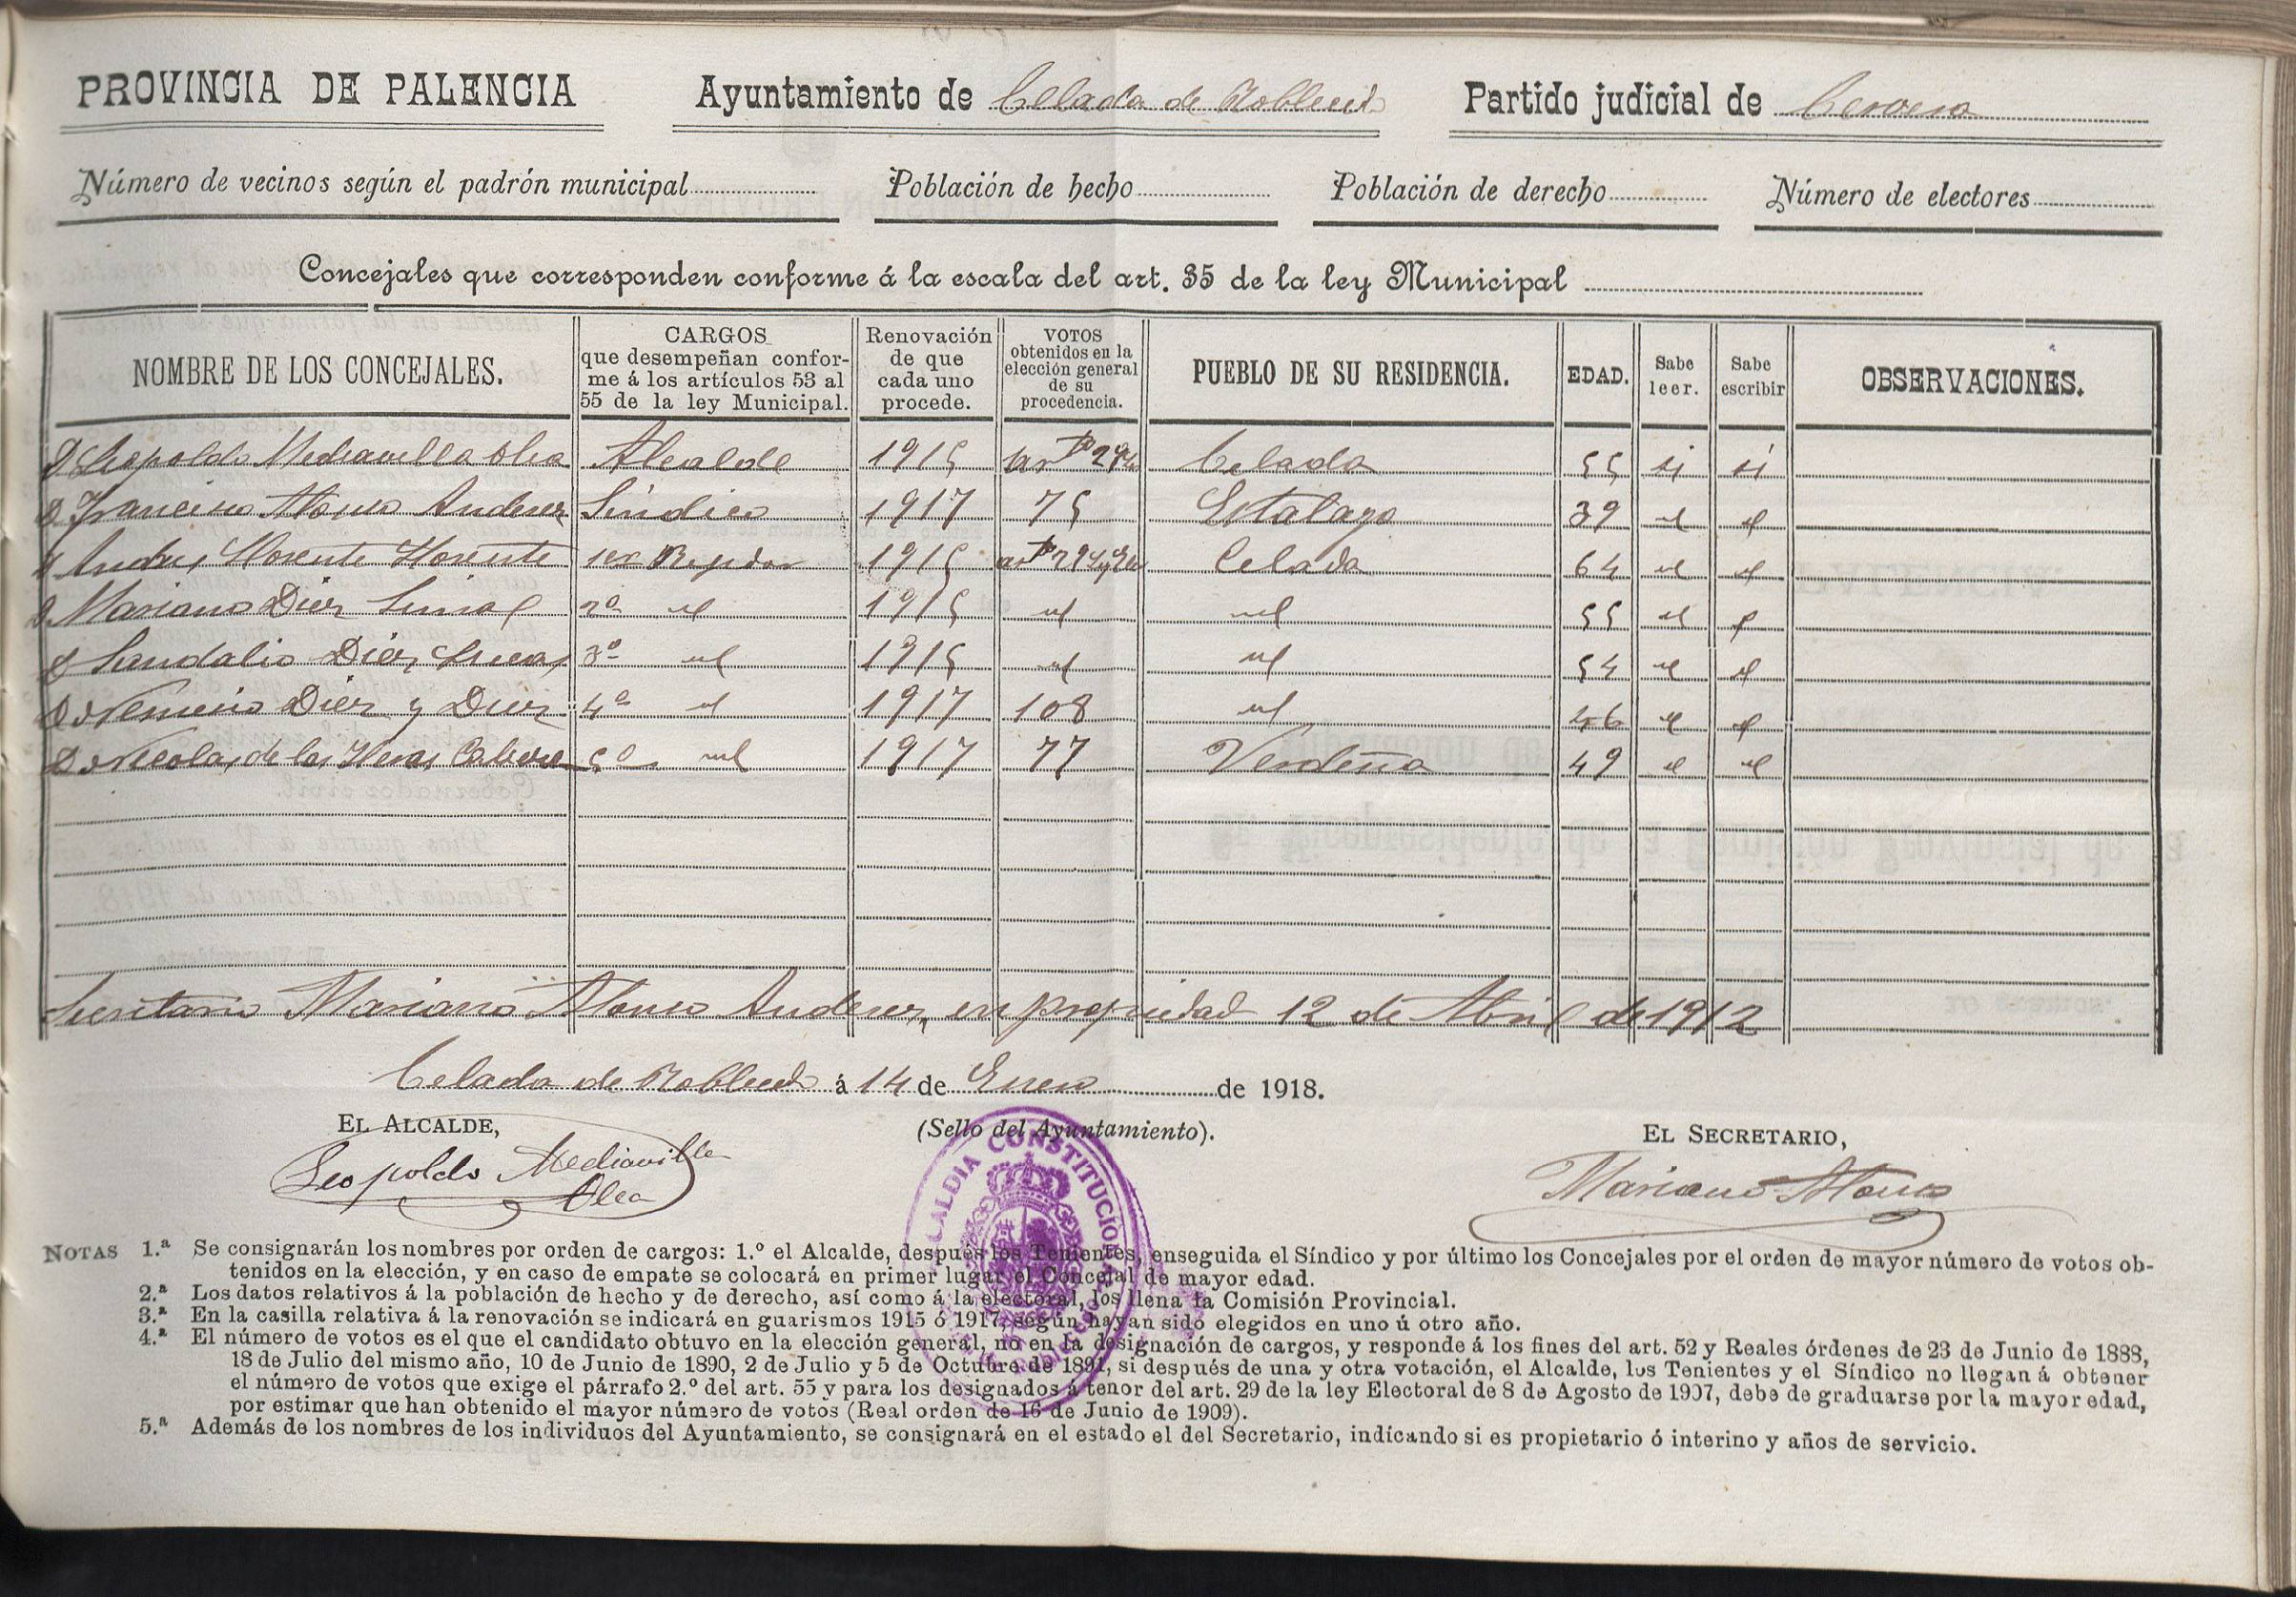 PROVINCIA DE PALENCIA Ayuntamiento de Celada de Roblecedo Partido judicial de Cervera
Número de vecinos según el padrón municipal Población de hecho Población de derecho Número de electores
Concejales que corresponden conforme á la escala del art. 35 de la ley Municipal
NOMBRE DE LOS CONCEJALES.
CARGOS
que desempeñan confor-
me á los artículos 53 al
55 de la ley Municipal.
Renovación
de que
cada uno
procede.
VOTOS
obtenidos en la
elección general
de su
procedencia.
PUEBLO DE SU RESIDENCIA.
EDAD.
Sabe
leer.
Sabe
escribir
OBSERVACIONES.
D Leopoldo Mediavilla Olea Alcalde 1915 artº 29 Celada 55 si si
D Francisco Alonso Anderez Síndico 1917 75 Estalaya 39 id id
D Andres Llorente Llorente 1er Regidor 1915 artº 29 Celada 64 id id
D Mariano Diez 2º id 1915 id id 55 id id
D Sandalio Diez 3º id 1915 id id 54 id id
D Nemesio Diez y Diez 4º id 1917 108 id 46 id id
D Nicolas de las Heras 5º id 1917 77 Verdeña 49 id id
Secretario Mariano Alonso Anderez, en propiedad 12 de Abril de 1912
Celada de Roblecedo á 14 de Enero de 1918.
EL ALCALDE, (Sello del Ayuntamiento). EL SECRETARIO,
Leopoldo Mediavilla
Olea
Mariano Alonso
ALCALDIA CONSTITUCIONAL
NOTAS 1.ª Se consignarán los nombres por orden de cargos: 1.º el Alcalde, después los Tenientes, enseguida el Síndico y por último los Concejales por el orden de mayor número de votos ob-
tenidos en la elección, y en caso de empate se colocará en primer lugar el Concejal de mayor edad.
2.ª Los datos relativos á la población de hecho y de derecho, así como á la electoral, los llena la Comisión Provincial.
3.ª En la casilla relativa á la renovación se indicará en guarismos 1915 ó 1917, según hayan sido elegidos en uno ú otro año.
4.ª El número de votos es el que el candidato obtuvo en la elección general, no en la designación de cargos, y responde á los fines del art. 52 y Reales órdenes de 23 de Junio de 1888,
18 de Julio del mismo año, 10 de Junio de 1890, 2 de Julio y 5 de Octubre de 1891, si después de una y otra votación, el Alcalde, los Tenientes y el Síndico no llegan á obtener
el número de votos que exige el párrafo 2.º del art. 55 y para los designados á tenor del art. 29 de la ley Electoral de 8 de Agosto de 1907, debe de graduarse por la mayor edad,
por estimar que han obtenido el mayor número de votos (Real orden de 16 de Junio de 1909).
5.ª Además de los nombres de los individuos del Ayuntamiento, se consignará en el estado el del Secretario, indicando si es propietario ó interino y años de servicio.